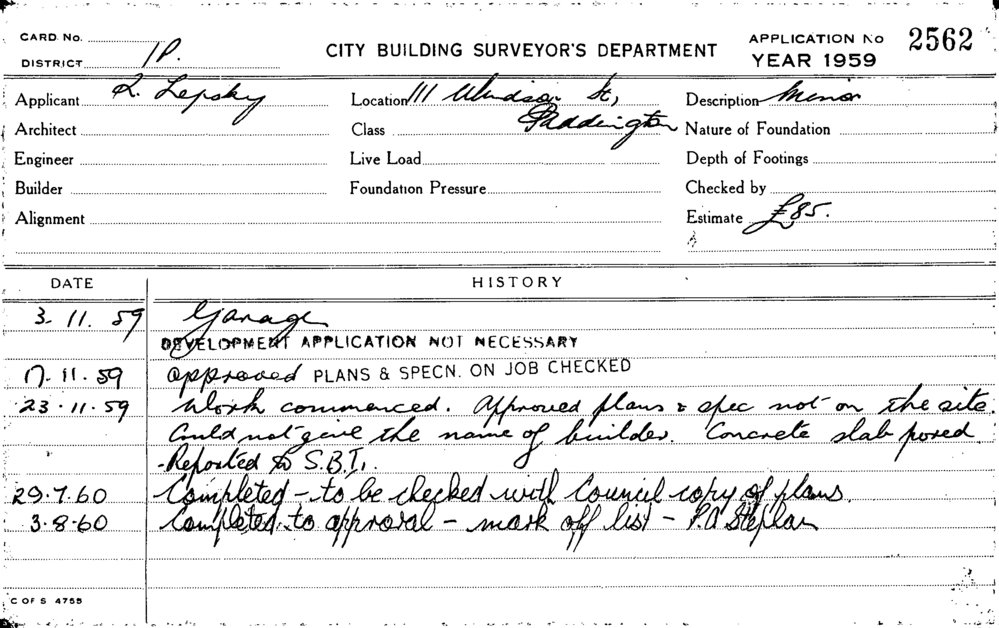 CARD No.
CITY BUILDING SURVEYOR'S DEPARTMENT
APPLICATION No 2562
DISTRICT 1P.
YEAR 1959
Applicant R. Lepsky
Location 111 Windsor St,
Description Minor
Architect
Class Paddington
Nature of Foundation
Engineer
Live Load
Depth of Footings
Builder
Foundation Pressure
Checked by
Alignment
Estimate £85.
DATE
HISTORY
3. 11. 59 Garage
DEVELOPMENT APPLICATION NOT NECESSARY
17. 11. 59 approved PLANS & SPECN. ON JOB CHECKED
23. 11. 59 Work commenced. Approved plans & spec not on the site.
Could not give the name of builder. Concrete slab pored
- Reported to S.B.I.
29.7.60 Completed - to be checked with Council copy of plans.
3.8.60 Completed to approval - mark off list - P.A
C OF S 4755